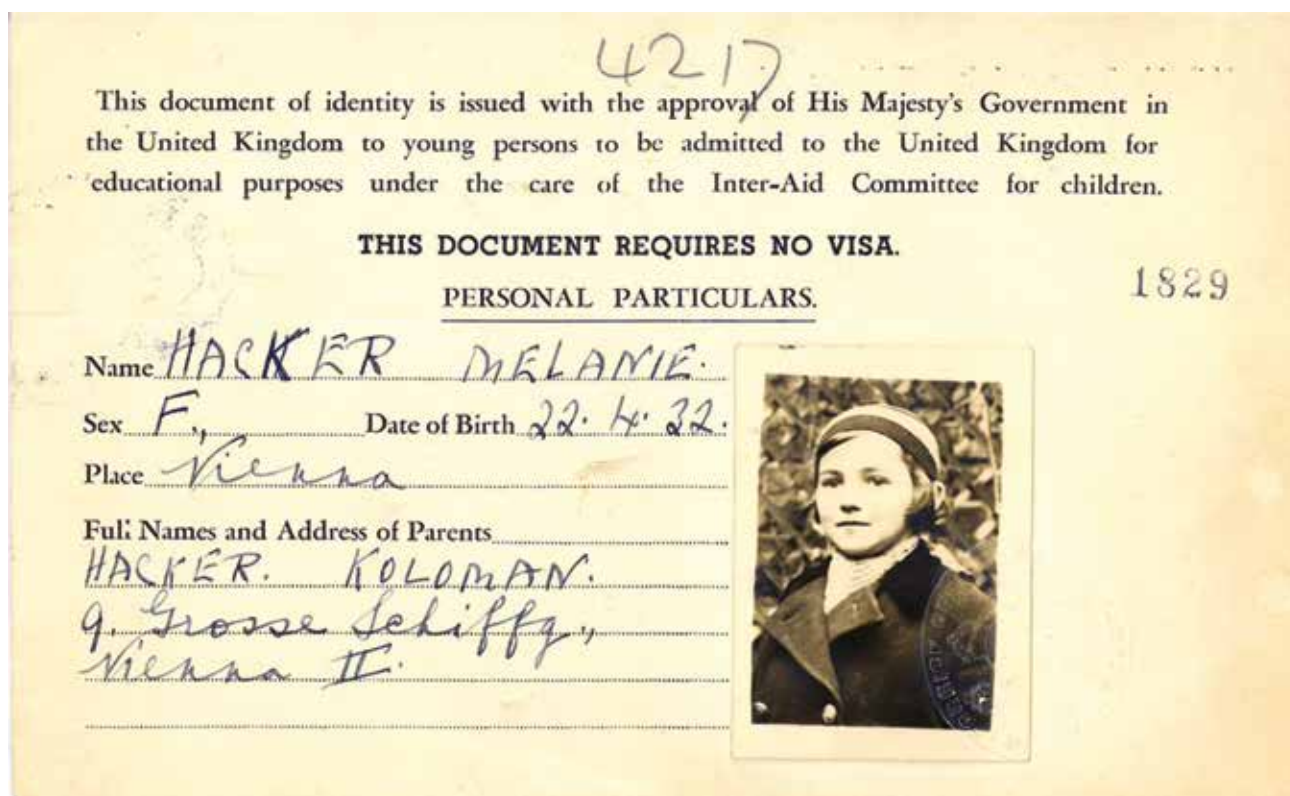 4217
This document of identity is issued with the approval of His Majesty's Government in
the United Kingdom to young persons to be admitted to the United Kingdom for
educational purposes under the care of the Inter-Aid Committee for children.
THIS DOCUMENT REQUIRES NO VISA.
PERSONAL PARTICULARS.
1829
Name HACKER MELANIE.
Sex F., Date of Birth 22. 4. 32.
Place Vienna
Full Names and Address of Parents
HACKER. KOLOMAN.
9, Grosse Schiffg.,
Vienna II.